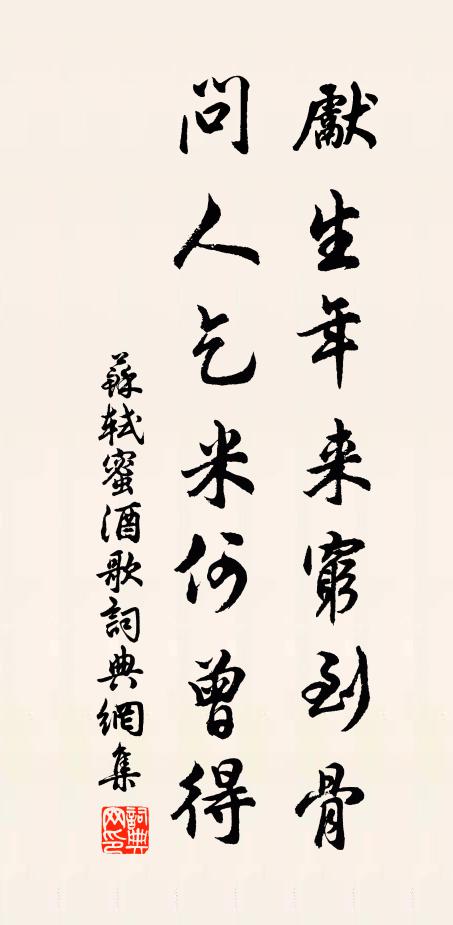 獻生年来窮到骨
問人乞米何曾得
蘇軾蜜酒歌詞典網集
詞典
网印